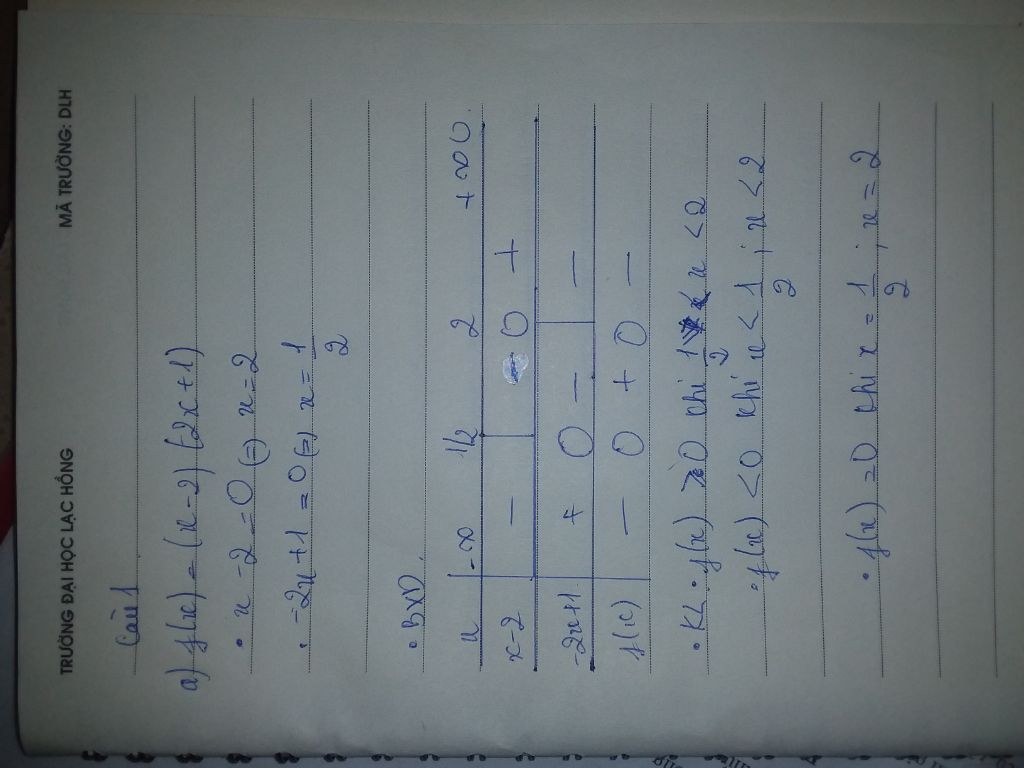 TRƯỜNG ĐẠI HỌC LẠC HỒNG MÃ TRƯỜNG: DLH
Câu 1
a) f(x) = (x - 2) (-2x + 1)
• x - 2 = 0 (=) x = 2
• -2x + 1 = 0 (=) x = 1/2
• BXD
x -∞ 1/2 2 +∞
x-2 - - 0 +
-2x+1 + 0 - -
f(x) - 0 + 0 -
• KL • f(x) > 0 khi 1/2 < x < 2
• f(x) < 0 khi x < 1/2 ; x < 2
• f(x) = 0 khi x = 1/2 ; x = 2